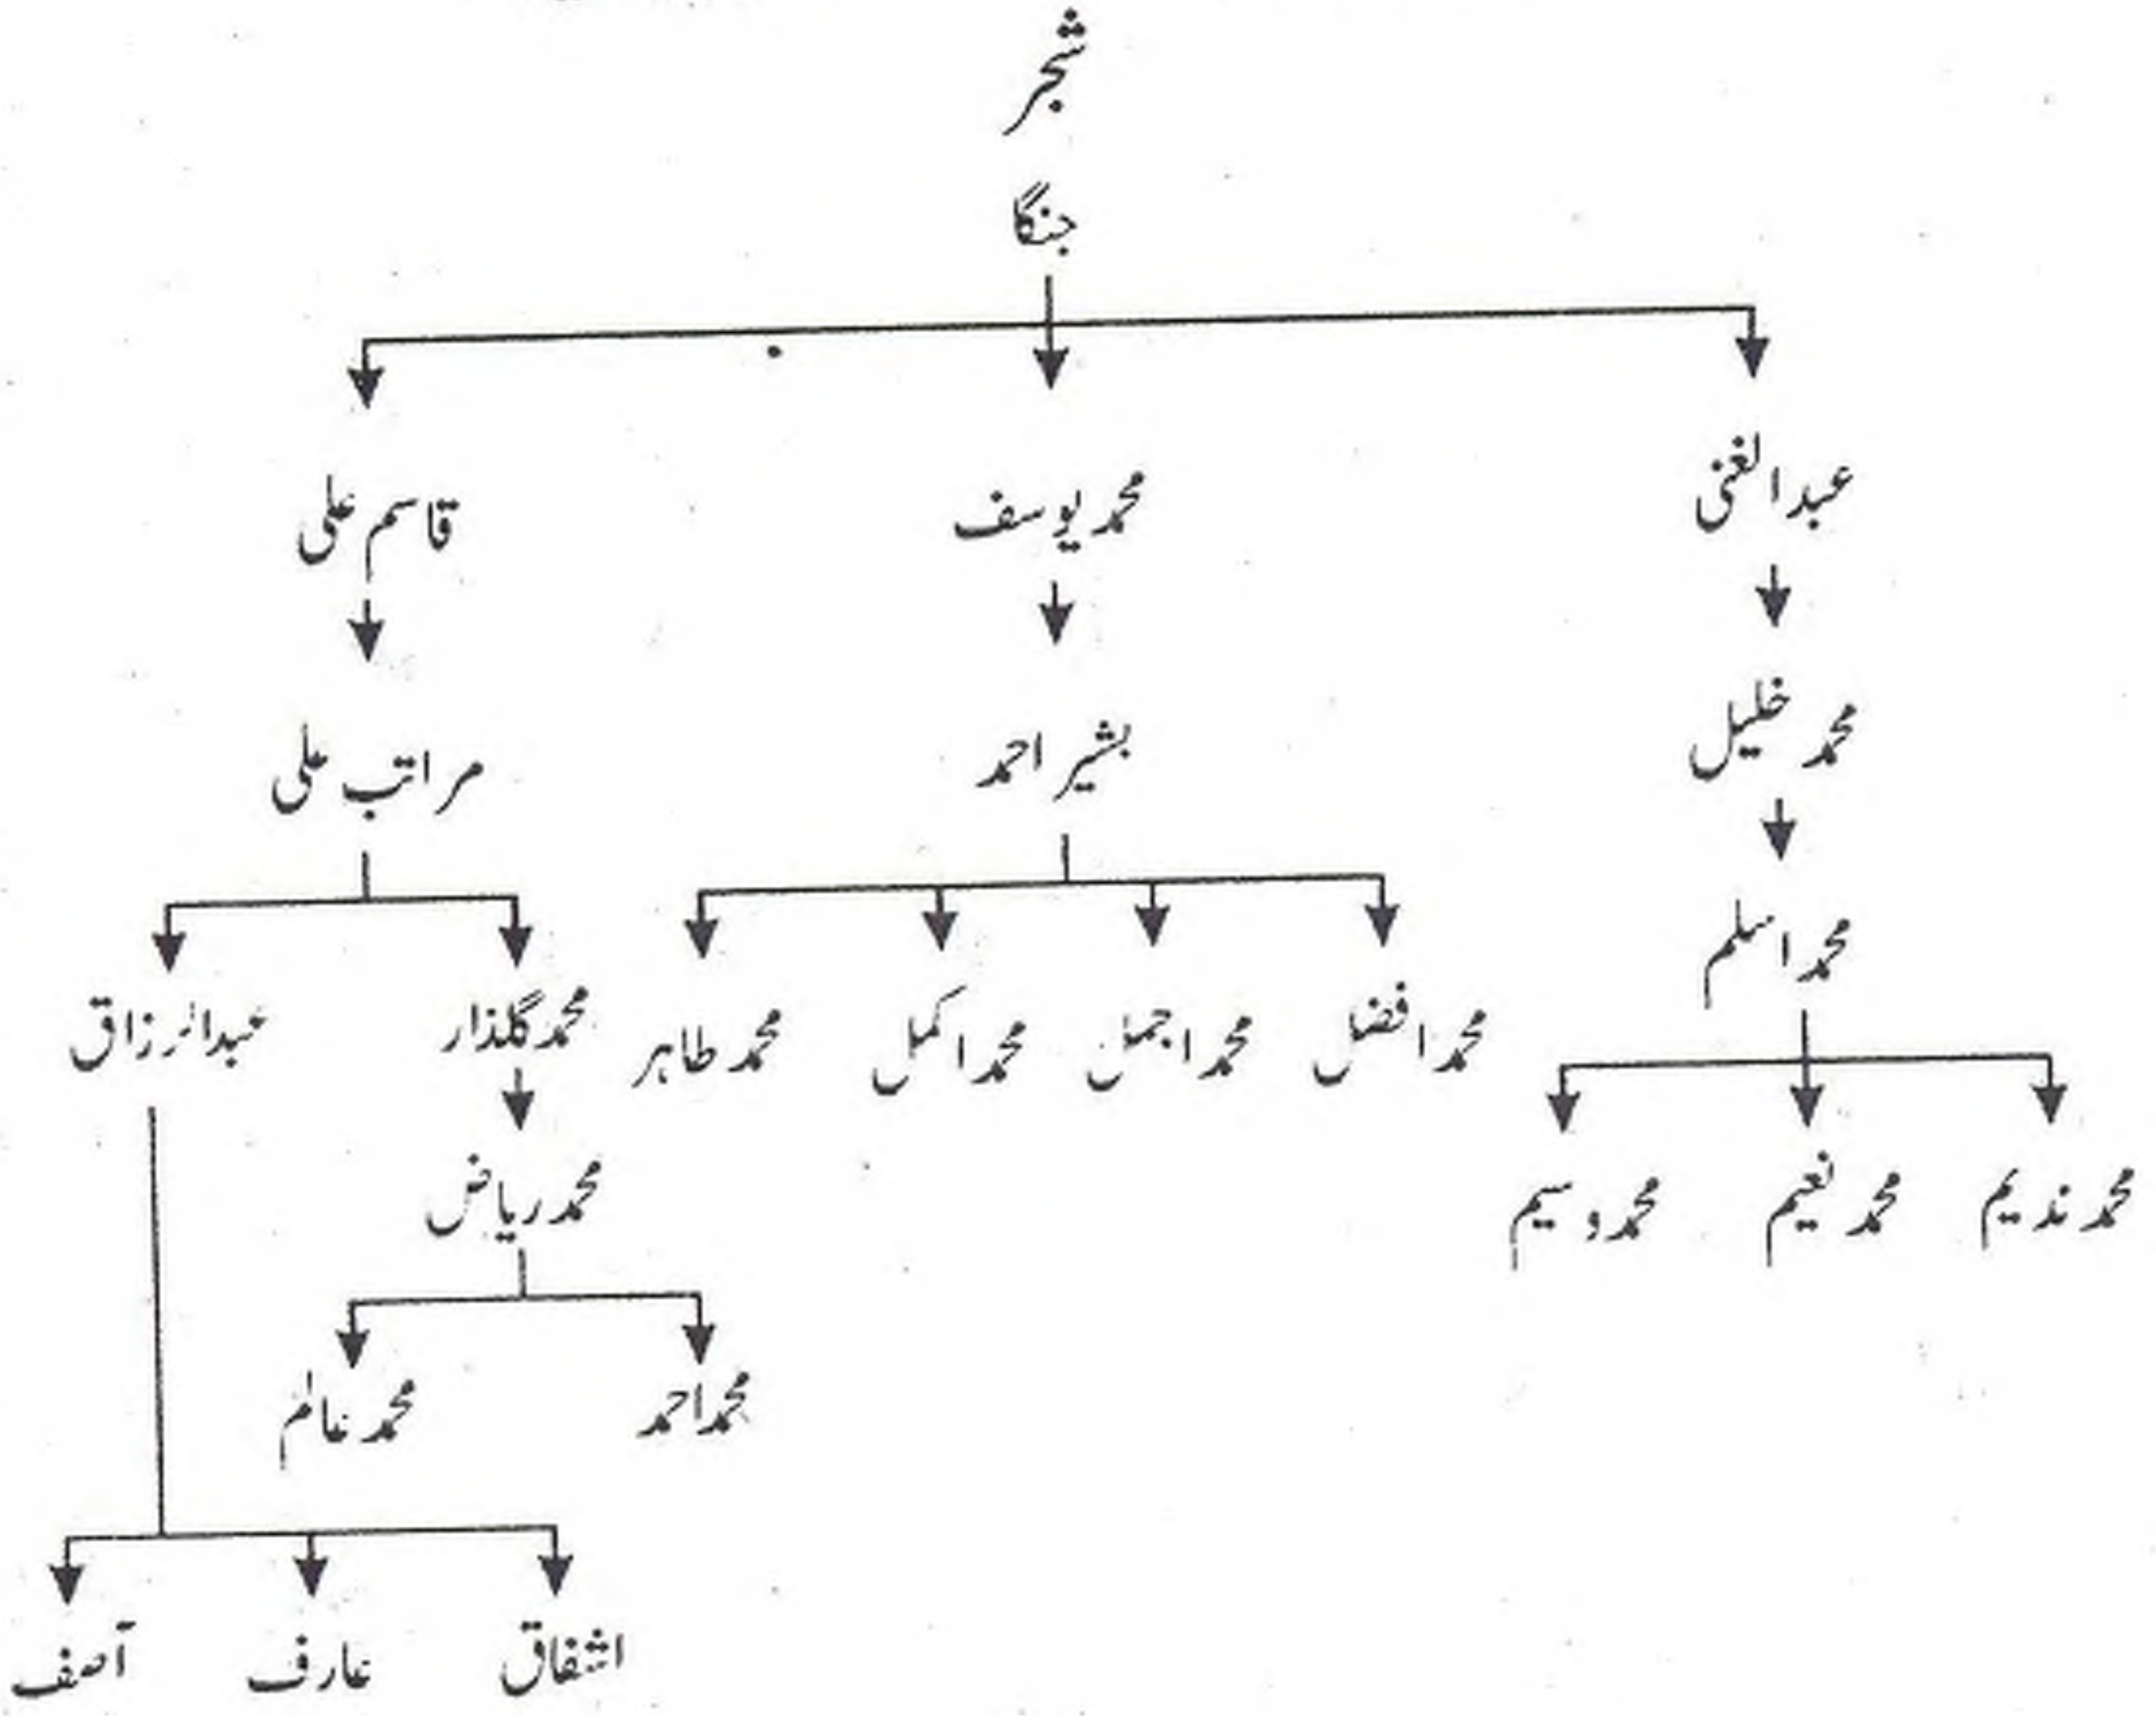 شجر
جنگا
عبدالغنی محمد یوسف قاسم علی
محمد خلیل بشیر احمد مراتب علی
محمد اسلم
محمد افضل محمد اجمل محمد اکمل محمد طاہر محمد گلذار عبدالرزاق
محمد ندیم محمد نعیم محمد وسیم محمد ریاض
محمد احمد محمد عالم
اشفاق عارف آصف